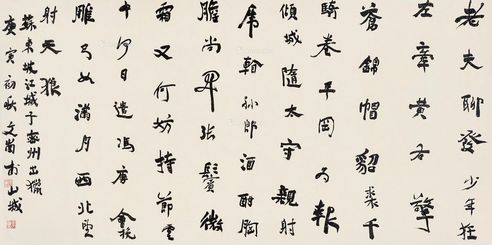 老夫聊發少年狂
左牽黃右擎
蒼錦帽貂裘千
騎卷平岡為報
傾城隨太守親射
虎看孫郎酒酣胸
膽尚開張鬢微
霜又何妨持節雲
中何日遣馮唐會挽
雕弓如滿月西北望
射天狼
蘇東坡江城子密州出獵
庚寅初秋文 於山城